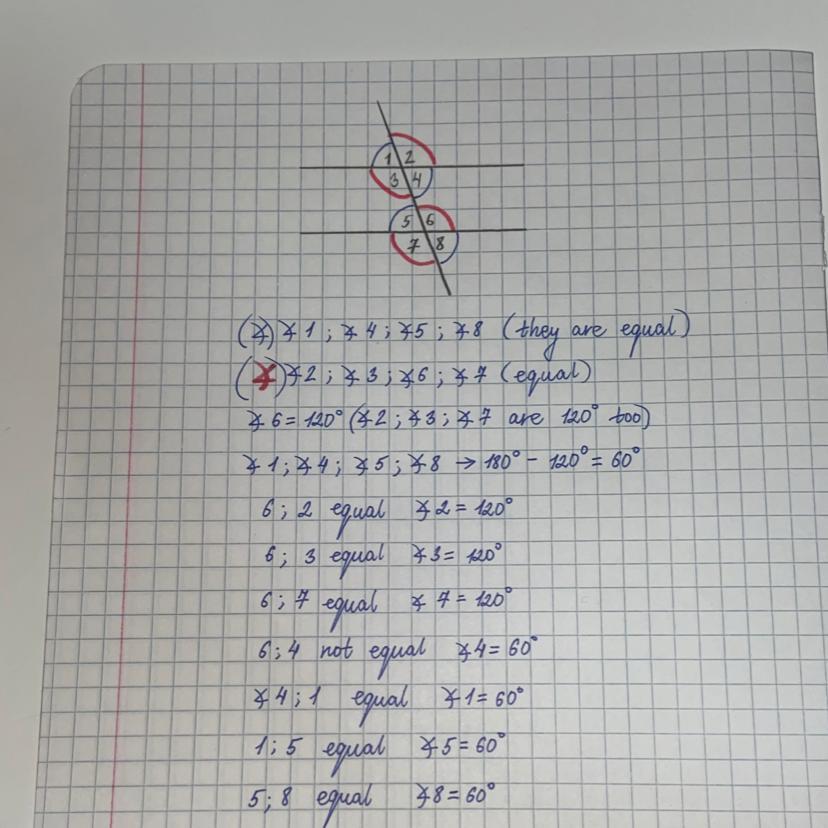 1 2
3 4
5 6
7 8
(∡) ∡1 ; ∡4 ; ∡5 ; ∡8 (they are equal)
(∡) ∡2 ; ∡3 ; ∡6 ; ∡7 (equal)
∡6 = 120° (∡2 ; ∡3 ; ∡7 are 120° too)
∡1 ; ∡4 ; ∡5 ; ∡8 → 180° - 120° = 60°
6 ; 2 equal ∡2 = 120°
6 ; 3 equal ∡3 = 120°
6 ; 7 equal ∡7 = 120°
6 ; 4 not equal ∡4 = 60°
∡4 ; 1 equal ∡1 = 60°
1 ; 5 equal ∡5 = 60°
5 ; 8 equal ∡8 = 60°